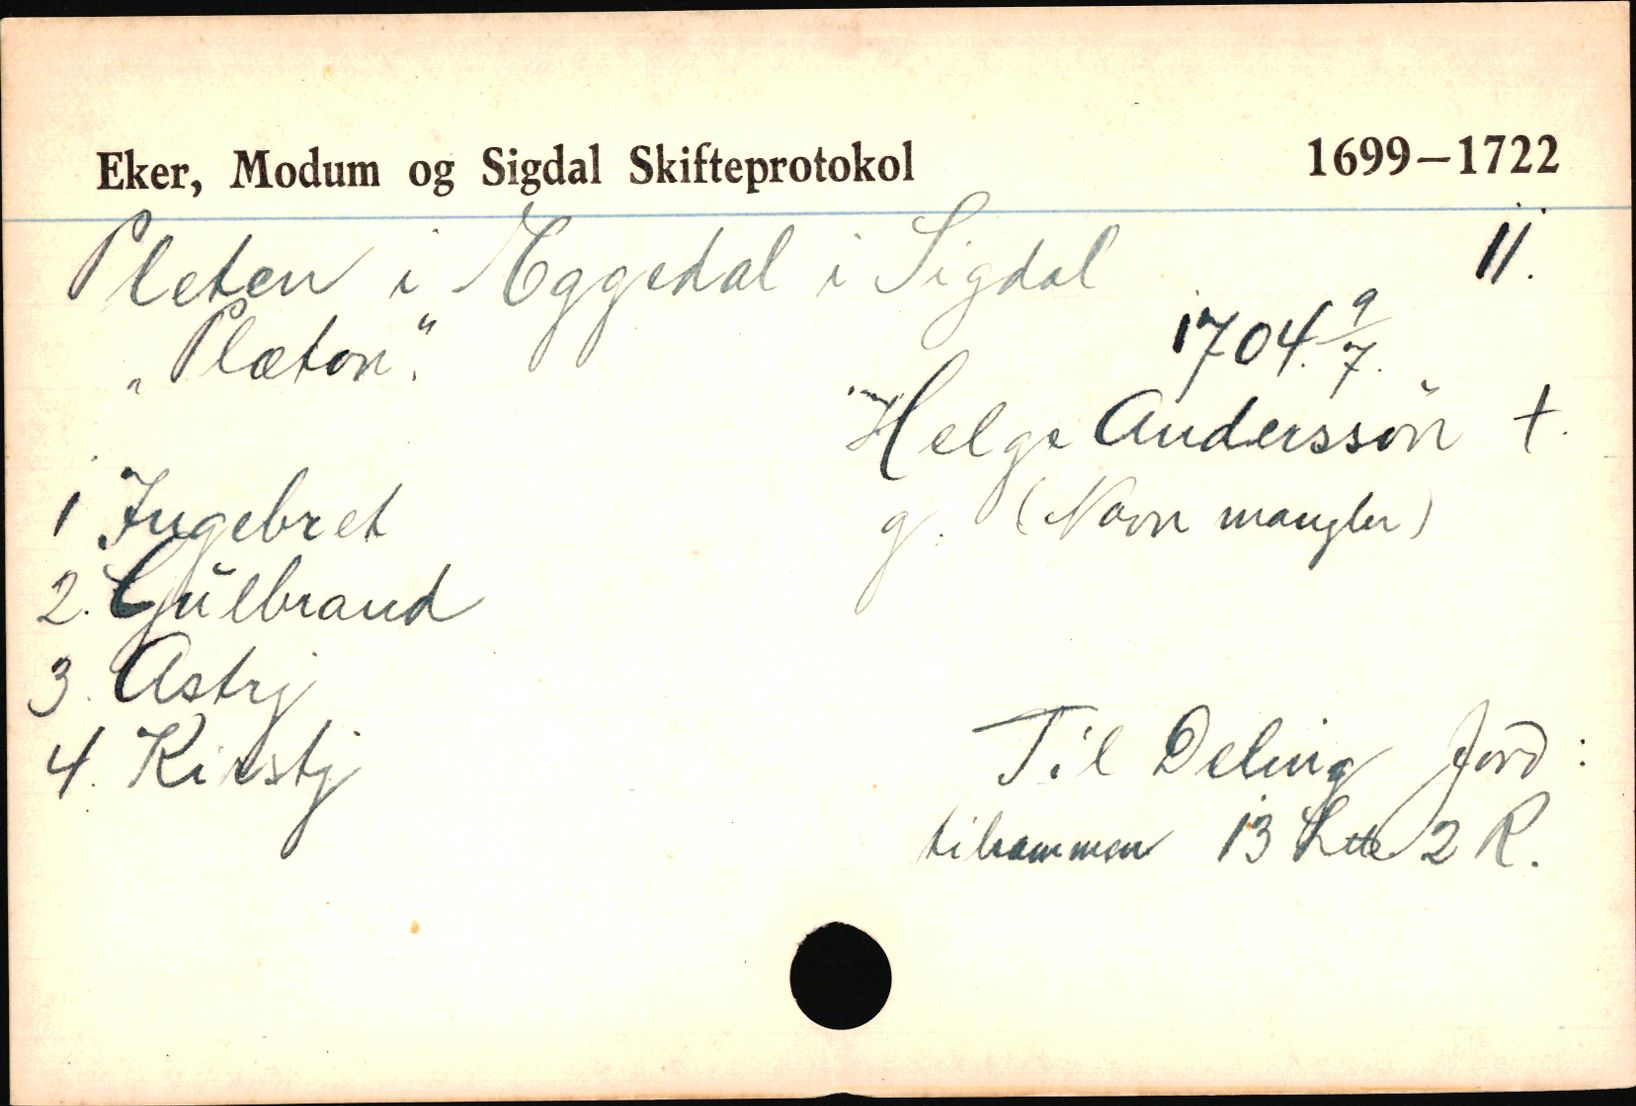 Eker, Modum og Sigdal Skifteprotokol 1699–1722
Pleten i Eggedal i Sigdal 11.
„Plæton". 1704 9/7.
Helge Anderssøn †.
1 Ingebret g. (Navn mangler)
2. Gulbrand
3. Astrj
4. Kirstj Til Deling Jord:
tilsammen 13 Lette 2 R.